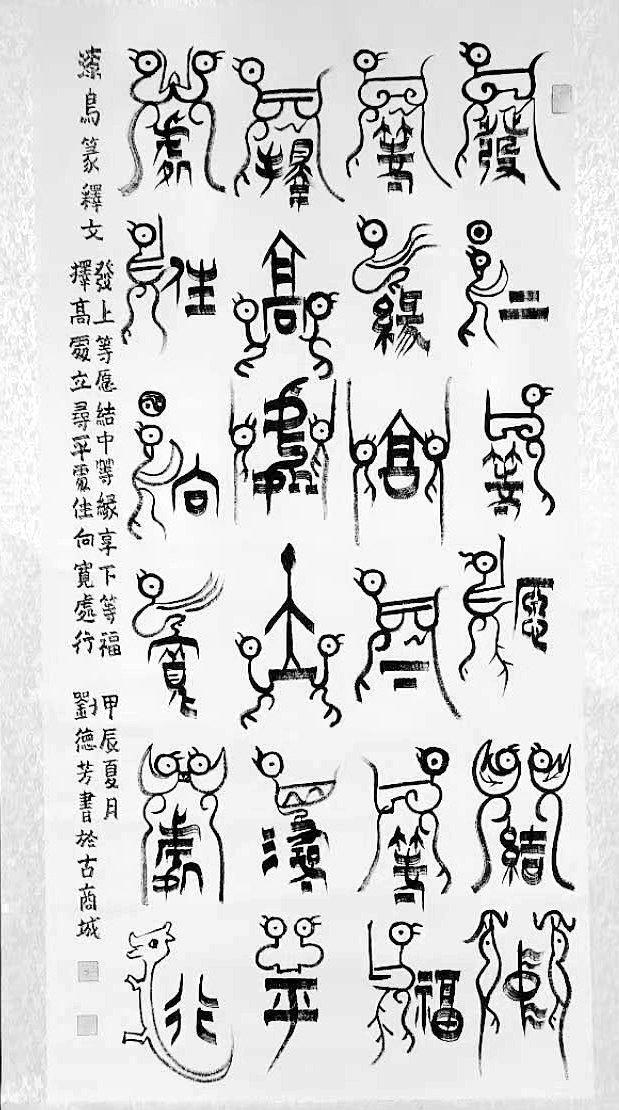 發上等愿結中
等緣享下等福
擇高處立尋平
處住向寬處行
漆鳥篆釋文
發上等愿結中等緣享下等福
擇高處立尋平處住向寬處行
甲辰夏月
劉德芳書於古商城